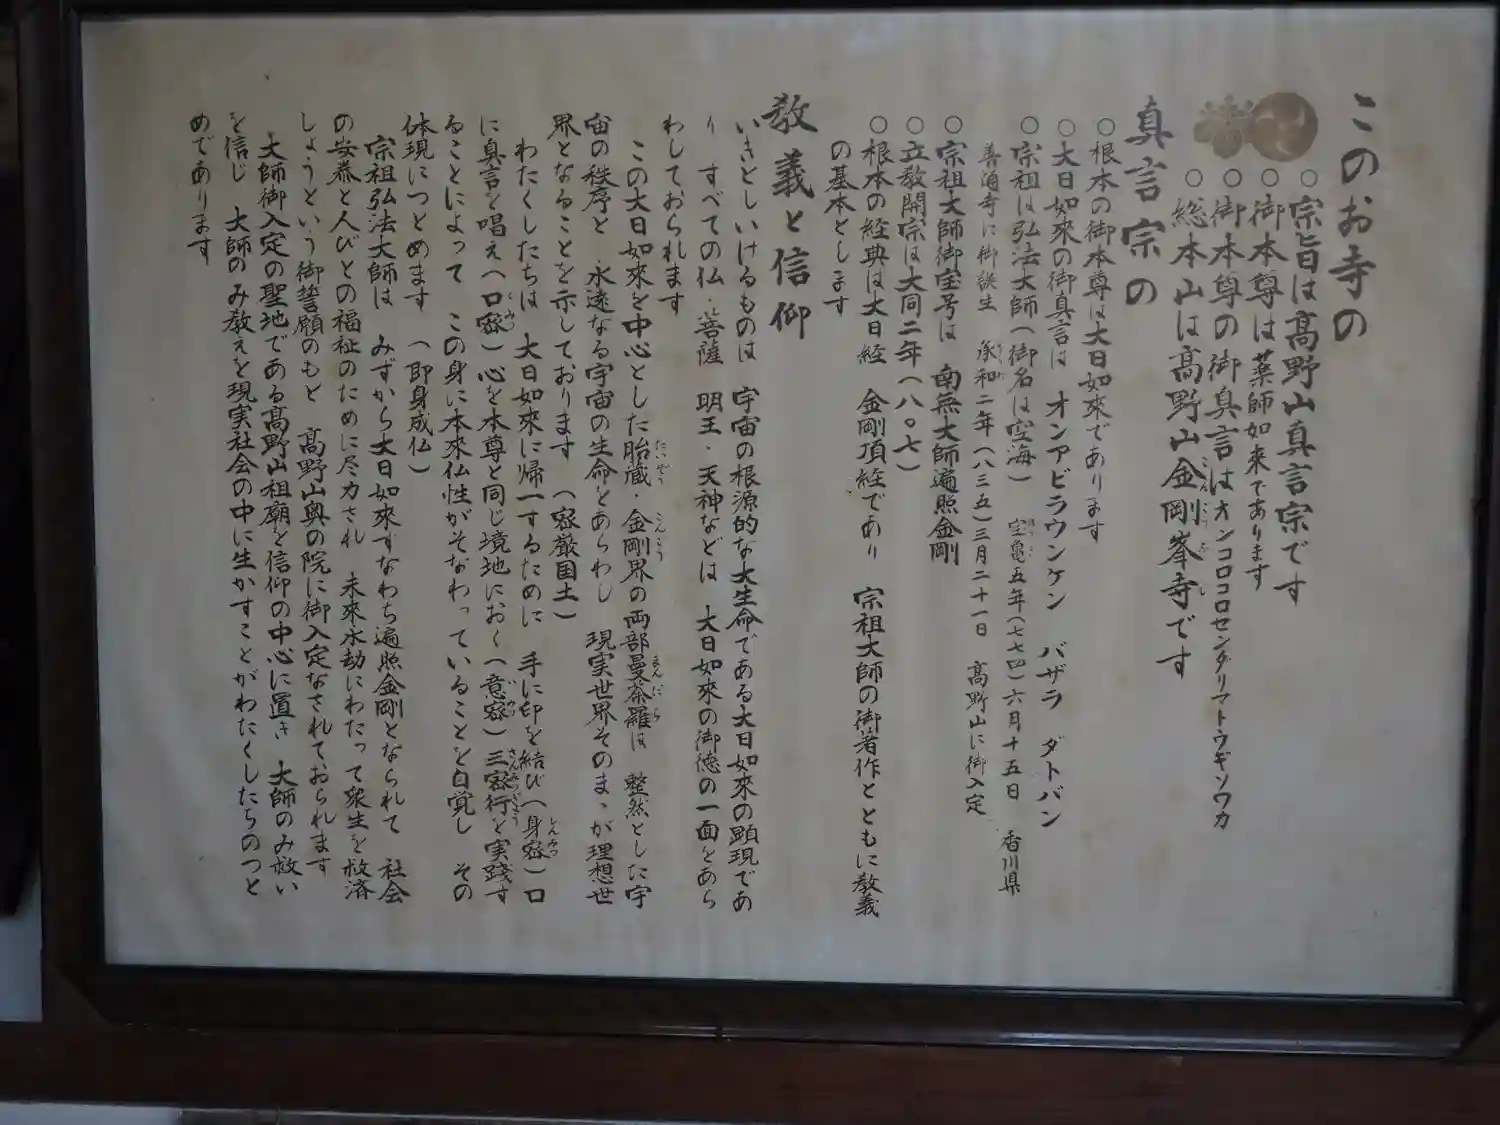 このお寺の
○宗旨は高野山真言宗です
○御本尊は薬師如来であります
○御本尊の御真言はオンコロコロセンダリマトウギソワカ
○総本山は高野山金剛峯寺です
真言宗の
○根本の御本尊は大日如來であります
○大日如來の御真言は オンアビラウンケン バザラ ダトバン
○宗祖は弘法大師(御名は空海) 宝亀五年(七七四)六月十五日 香川県
善通寺に御誕生 承和二年(八三五)三月二十一日 高野山に御入定
○宗祖大師御宝号は 南無大師遍照金剛
○立教開宗は大同二年(八〇七)
○根本の経典は大日経 金剛頂経であり 宗祖大師の御著作とともに教義
の基本とします
教義と信仰
いきとしいけるものは 宇宙の根源的な大生命である大日如來の顕現であ
り すべての仏・菩薩 明王・天神などは 大日如來の御徳の一面をあら
わしておられます
この大日如來を中心とした胎蔵・金剛界の両部曼荼羅は 整然とした宇
宙の秩序と 永遠なる宇宙の生命とをあらわし 現実世界そのまゝが理想世
界となることを示しております (密厳国土)
わたくしたちは 大日如來に帰一するために 手に印を結び(身密)口
に真言を唱え(口密)心を本尊と同じ境地におく(意密)三密行を実践す
ることによって この身に本來仏性がそなわっていることを自覚し その
体現につとめます (即身成仏)
宗祖弘法大師は みずから大日如來すなわち遍照金剛となられて 社会
の安泰と人びとの福祉のために尽力され 未來永劫にわたって衆生を救済
しょうという御誓願のもと 高野山奥の院に御入定なされておられます
大師御入定の聖地である高野山祖廟を信仰の中心に置き 大師のみ救い
を信じ 大師のみ教えを現実社会の中に生かすことがわたくしたちのつと
めであります